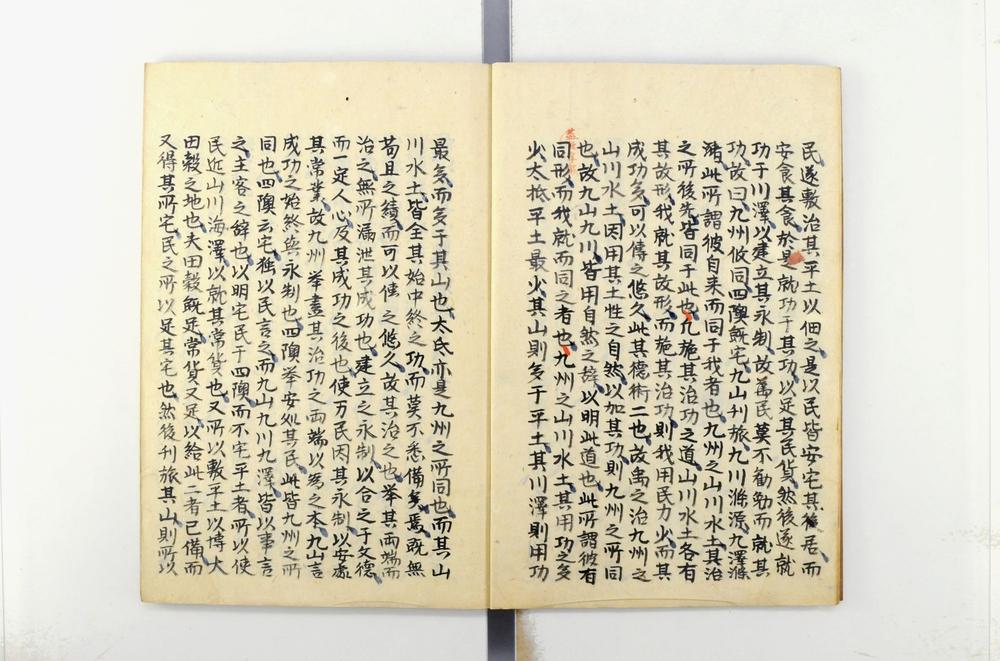 民遂敷治其平土以佃之是以民皆安宅其後居而
安食其食於是就功于其功以足其民貨然後遂就
功于川澤以建立其永制故萬民莫不勸勉而就其
功故曰九州攸同四隩既宅九山刊旅九川滌源九澤滌
豬此所謂彼自来而同于我者也九州之山川水土其治
之所後先皆同于此也九施其治功之道山川水土各有
其故形我就其故形而施其治功則我用民力少而其
成功多可以傳之悠久此其德術二也故禹之治九州之
山川水土因用其土性之自然以加其功則九州之所同
也故九山九川皆用自然之辞以明此道也此所謂彼有
同形而我就而同之者也九州之山川水土其用功之多
少太抵平土最少其山則多于平土其川澤則用功
最多而多于其山也太氐亦是九州之所同也而其山
川水土皆全其始中終之功而莫不悉備矣焉既無
苟且之績而可以傳之悠久故其治之也举其両端而
治之無所漏泄其成功也建立之永制以合之于文德
而一定人心及其成功之後也使万民因其永制以安處
其常業故九州举盡其治功之両端以為之本九山言
成功之始終與永制也四隩举安処其民此皆九州之所
同也四隩云宅独以民言之而九山九川九澤皆以事言
之主客之辞也以明宅民于四隩而不宅平土者所以使
民近山川海澤以就其常貨也又所以敷平土以博大
田穀之地也夫田穀既足常貨又足以給此二者已備而
又得其所宅民之所以足其宅也然後刊旅其山則所以